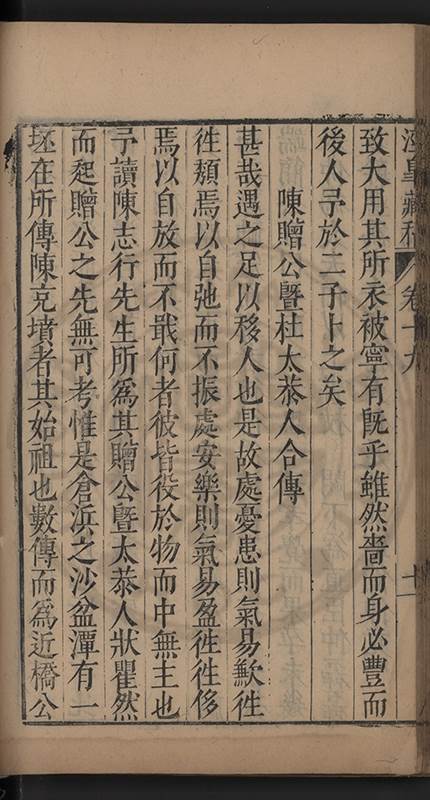 涇臯藏稿 卷十九 十一
致大用其所衣被寧有既乎雖然嗇而身必豐而
後人予於二子卜之矣
陳贈公曁杜太恭人合傳
甚哉遇之足以移人也是故處憂患則氣易歉徃
徃頹焉以自弛而不振處安樂則氣易盈徃徃侈
焉以自放而不戢何者彼皆役於物而中無主也
予讀陳志行先生所爲其贈公曁太恭人狀瞿然
而起贈公之先無可考惟是倉浜之沙盆潭有一
坯在所傳陳克墳者其始祖也數傳而爲近橋公